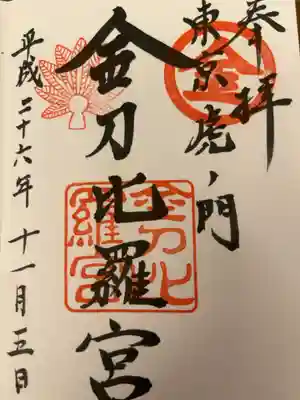 奉拝
東京虎ノ門
金
金刀比羅宮
金刀比
羅宮
平成二十六年十一月五日